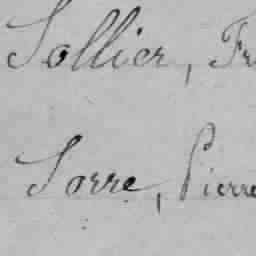 Sollier, Fr
Sorre, Pierre